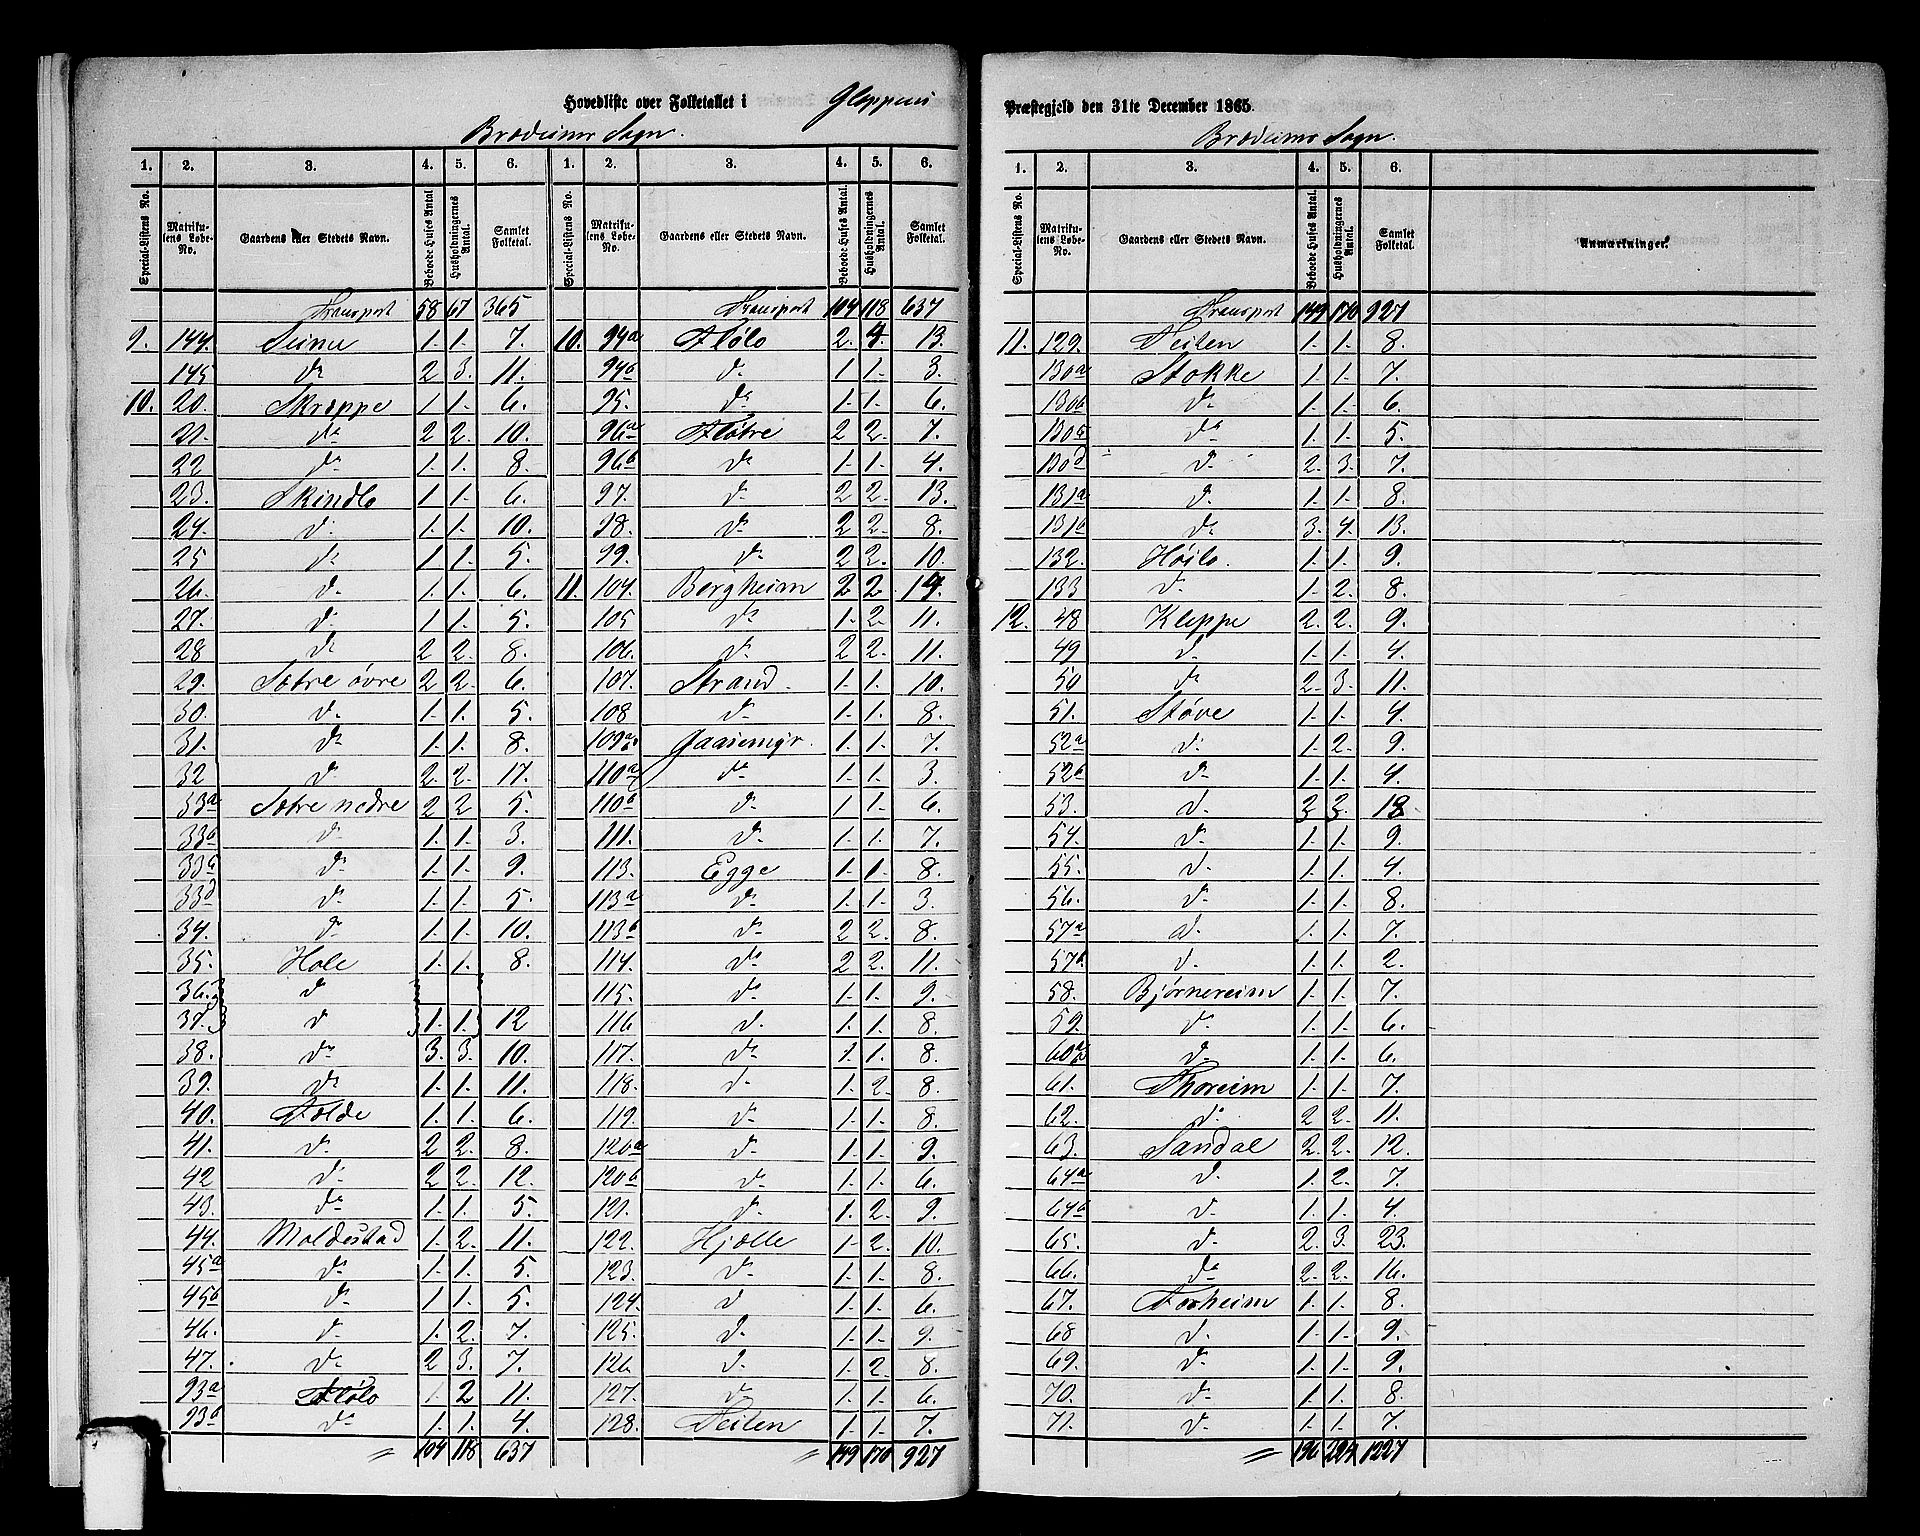 Hovedliste over Folketallet i Gloppens Præstegjeld den 31te December 1865.
Bredeims Sogn. Bredeims Sogn.
1. 2. 3. 4. 5. 6. 1. 2. 3. 4. 5. 6.
Special-Listens No. Matrikulens Løbe-No. Gaardens eller Stedets Navn. Beboede Huses Antal Husholdningernes Antal. Samlet Folketal. Special-Listens No. Matrikulens Løbe-No. Gaardens eller Stedets Navn. Beboede Huses Antal. Husholdningernes Antal. Samlet Folketal.
Transport 58 67 365 Transport 104 118 637
9. 144. Seime 1. 1. 7. 10. 94a Flølo 2. 4. 13.
145 do 2 3. 11. 94b do 1 1. 3.
10. 20. Skreppe 1 1. 6. 95. do 1. 1. 6.
21. do 2 2. 10. 96a Fløtre 2 2. 7.
22 do 1. 1. 8. 96b do 1. 1. 4.
23. Skindlo 1 1. 6. 97. do 2 2. 13.
24. do 1. 1. 10. 98. do 2 2. 8.
25 do 1 1. 5. 99. do 2 2. 10.
26. do 1 1. 6. 11. 104. Bergheim 2 2. 14.
27. do 1 1. 5. 105 do 1. 2. 11.
28 do 2 2. 8. 106. do 2 2. 11.
29. Sætre øvre 2 2. 6. 107. Strand. 1. 1. 10.
30. do 1. 1. 5. 108 do 1. 1. 8.
31. do 1 1. 8. 109ab Gaasemyr. 1. 1. 7.
32 do 2. 2. 17. 110a do 1 1. 3.
33a Sætre nedre 2 2 5. 110b do 1. 1. 6.
33b do 1. 1. 3. 111. do 1. 1. 7.
33c do 1. 1. 9. 113. Egge 1. 1. 8.
33d do 1. 1. 5. 113a do 1. 1. 3.
34. do 1. 1. 10. 113b do 2 2. 8.
35. Hole 1. 1. 8. 114. do 2 2. 11.
36. do 115. do 1. 1. 9.
37. do 1. 1. 12 116 do 1. 1. 8.
38. do 3. 3. 10. 117. do 1. 1. 8.
39. do 1. 1. 11. 118. do 1. 2. 8.
40. Folde 1. 1. 6. 119. do 1. 1. 8.
41. do 2 2. 8. 120a do 1. 1. 9.
42 do 2 2. 12. 120b do 1. 1. 6.
43. do 1. 1. 5. 121. do 1. 2. 9.
44. Moldestad 1. 2. 11. 122. Hjelle 1. 2. 10.
45a do 1. 1. 5. 123. do 1. 1. 8.
45b do 1 1. 5. 124. do 1. 1. 6.
46. do 1. 2. 7. 125. do 1. 1. 9.
47. do 2 3. 7. 126. do 1. 2 8.
93a Flølo 1. 2 11. 127. do 1. 1. 6.
93b do 1. 1. 4. 128. Seiten 1. 1. 7.
104 118 637 149 170 927
1. 2. 3. 4. 5. 6.
Special-Listens No. Matrikulens Løbe-No. Gaardens eller Stedets Navn. Beboede Huses Antal. Husholdningernes Antal. Samlet Folketal. Anmærkninger.
Transport 149 170 927
11. 129. Seiten 1. 1. 8.
130a Stokke 1. 1. 7.
130b do 1. 1. 6.
130c do 1. 1. 5.
130d do 2. 3. 7.
131a do 1. 1. 8.
131b do 3. 4. 13.
132. Høilo. 1. 1. 9.
133 do 1. 2. 8.
12. 48 Kleppe 2. 2. 9.
49 do 1. 1. 4.
50 do 2. 3. 11.
51. Støve 1. 1. 4.
52a do 1. 2. 9.
52b do 1. 1. 4.
53. do 3 3. 18
54. do 1. 1. 9.
55. do 1. 1. 4.
56. do 1. 1. 8.
57a do 1. 1. 7.
57b do 1. 1. 2.
58. Bjørnereim 1. 1. 7.
59. do 1. 1. 6.
60ab do 1. 1. 6.
61. Thoreim 1. 1. 7.
62. do 2 2. 11.
63. Sandal 2. 2. 12.
64a do 1. 2. 7.
64b do 1. 1. 4.
65. do 2. 3. 23.
66. do 2. 2. 16.
67. Forheim 1. 1. 8.
68 do 1. 1. 9.
69. do 1. 1. 9.
70. do 1. 1. 8.
71. do 1. 1. 7.
196 224 1227